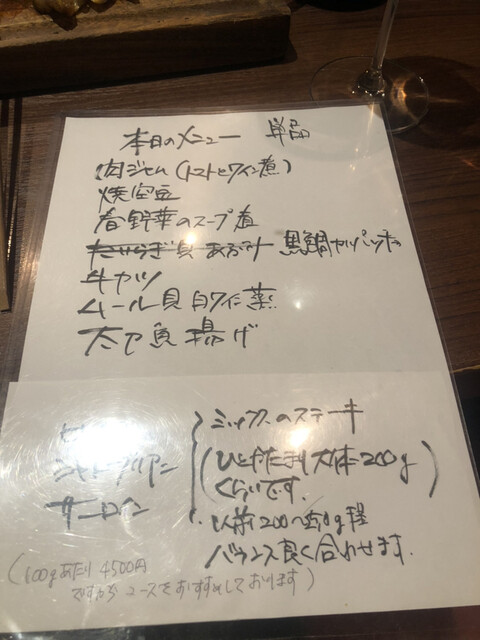 本日のメニュー 単品
肉ジャム(トマトとワイン煮)
焼空豆
春野菜のスープ煮
たいらぎ貝 あぶり 黒鯛
牛カツ
ムール貝 白ワイン蒸
太刀魚 揚げ
シャトーブリアン
サーロイン
ミックスのステーキ
(ひとかたまり 大体200g
くらいです。)
バランス良く合わせます。
(100gあたり 4500円
ですが コースをおすすめしております)